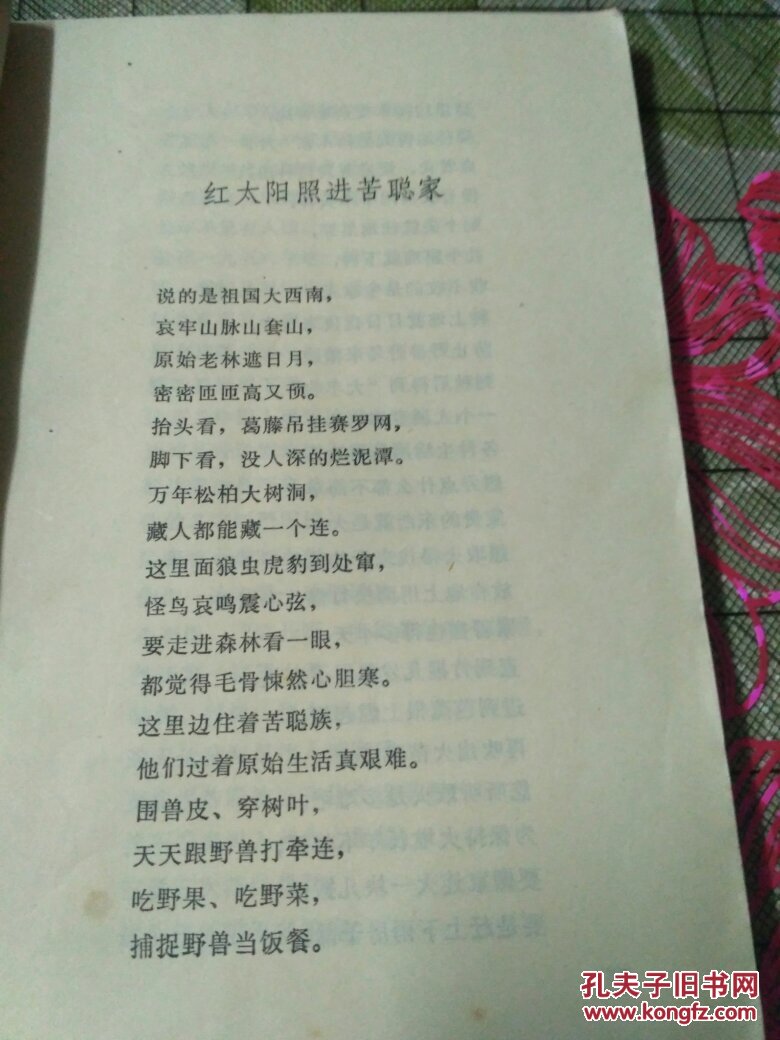 红太阳照进苦聪家
说的是祖国大西南，
哀牢山脉山套山，
原始老林遮日月，
密密匝匝高又预。
抬头看，葛藤吊挂赛罗网，
脚下看，没人深的烂泥潭。
万年松柏大树洞，
藏人都能藏一个连。
这里面狼虫虎豹到处窜，
怪鸟哀鸣震心弦，
要走进森林看一眼，
都觉得毛骨悚然心胆寒。
这里边住着苦聪族，
他们过着原始生活真艰难。
围兽皮、穿树叶，
天天跟野兽打牵连，
吃野果、吃野菜，
捕捉野兽当饭餐。
孔夫子旧书网
www.kongfz.com